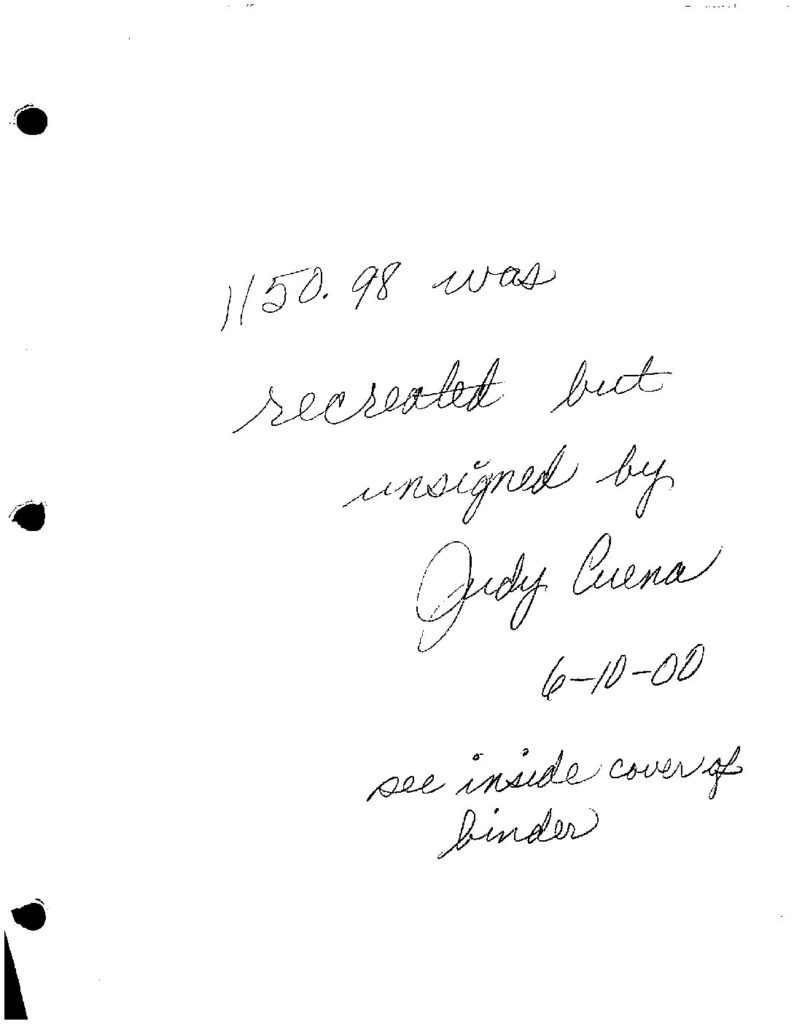 1150.98 was
recreated but
unsigned by
Judy Cuena
6-10-00
see inside cover of
binder